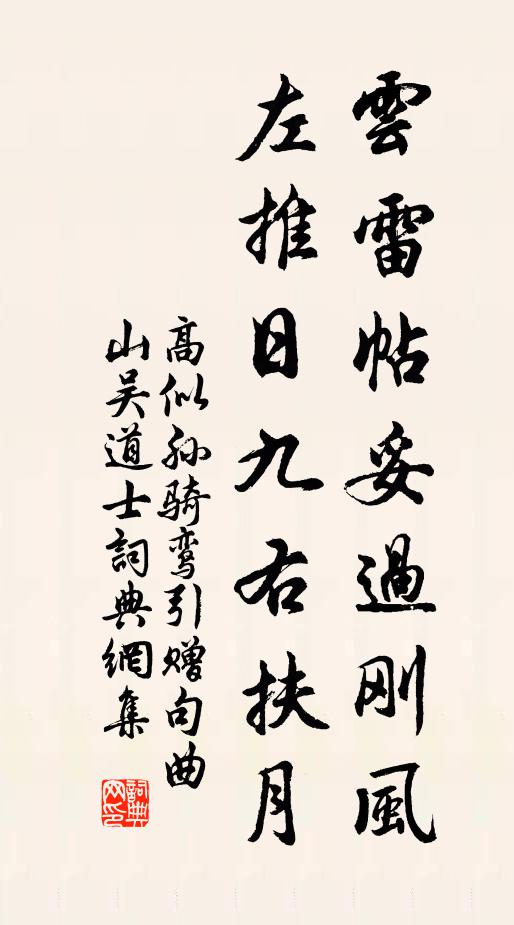 雲雷帖妥過刚風
左推日九右扶月
高似孙骑鸾引赠句曲
山吴道士詞典網集
詞典网印